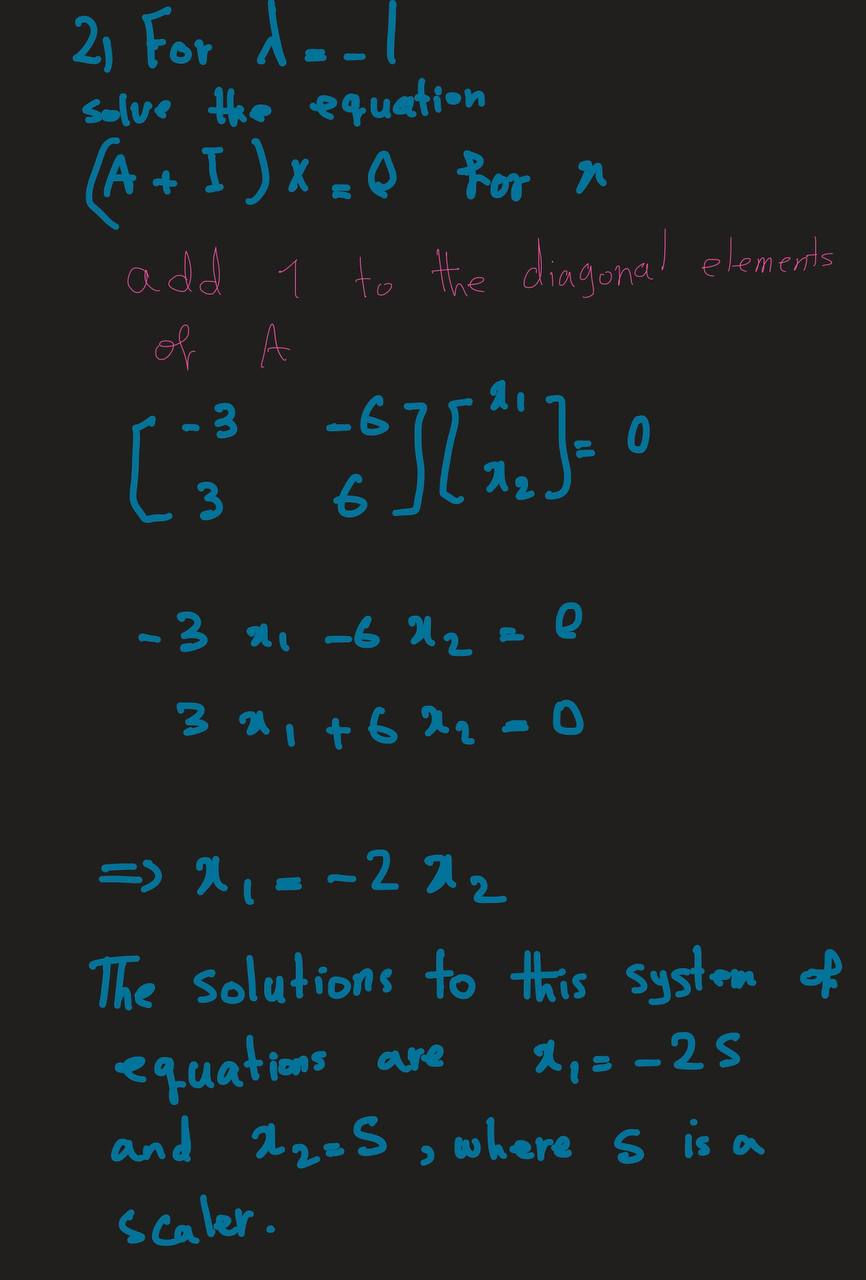 2) For λ = -1
solve the equation
(A + I) x = 0 for x
add 1 to the diagonal elements
of A
[-3 -6] [x1] = 0
[3 6] [x2]
-3 x1 -6 x2 = 0
3 x1 + 6 x2 = 0
=> x1 = -2 x2
The solutions to this system of
equations are x1 = -2 S
and x2 = S , where s is a
scaler.